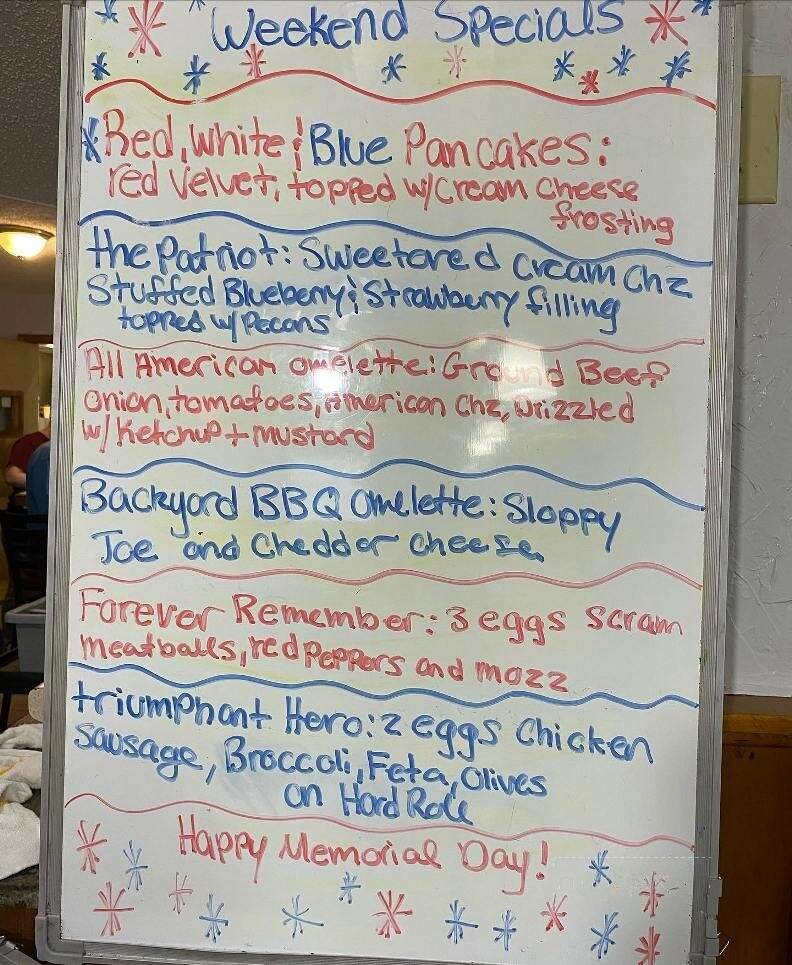 Weekend Specials
Red, White & Blue Pancakes:
red velvet, topped w/cream cheese
frosting
the Patriot: Sweetered Cream Chz
Stuffed Blueberry & Strawberry filling
topped w/ Pecans
All American omelette: Ground Beef
onion, tomatoes, American Chz, Drizzled
w/ Ketchup + mustard
Backyard BBQ Omelette: Sloppy
Joe and Cheddar cheese
Forever Remember: 3 eggs Scram
meatballs, red peppers and mozz
triumphant Hero: 2 eggs Chicken
sausage, Broccoli, Feta, Olives
on Hard Role
Happy Memorial Day!